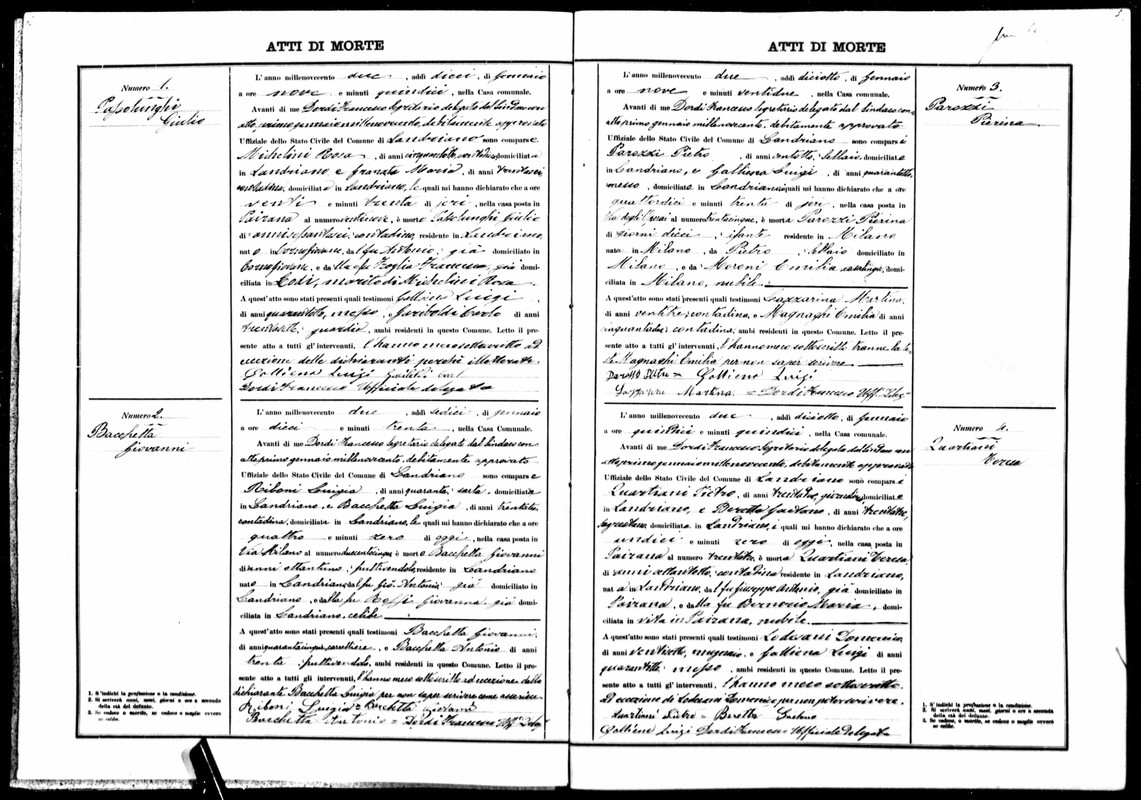 ATTI DI MORTE
Numero 1.
Passolunghi
Giulio
L'anno millenovecento due, addì dieci, di Gennaio
a ore nove e minuti quindici, nella Casa comunale.
Avanti di me Dordi Francesco Segretario delegato dal Sindaco con
atto primo gennaio millenovecento, debitamente approvato
Uffiziale dello Stato Civile del Comune di Landriano sono comparse
Michelini Rosa, di anni cinquantotto, contadina, domiciliata
in Landriano e Granata Maria, di anni trentasei
contadina, domiciliata in Landriano, le quali mi hanno dichiarato che a ore
venti e minuti trenta di ieri, nella casa posta in
Pairana al numero ventinove, è morto Passolunghi Giulio
di anni sessantasei, contadino, residente in Landriano,
nato in Cornogiovane, dal fu Antonio, già domiciliato in
Cornogiovane, e dalla fu Francesca, già domi-
ciliata in Lodi, marito di Michelini Rosa.
A quest'atto sono stati presenti quali testimoni Galliena Luigi
di anni quarantotto, messo, e di anni
trentasette, guardia, ambi residenti in questo Comune. Letto il pre-
sente atto a tutti gl'intervenuti, l'hanno meco sottoscritto ad
eccezione delle dichiaranti perché illetterate.
Galliena Luigi
Dordi Francesco Ufficiale delegato
Numero 2.
Bacchetta
Giovanni
L'anno millenovecento due, addì sedici, di Gennaio
a ore dieci e minuti trenta, nella Casa comunale.
Avanti di me Dordi Francesco Segretario delegato dal Sindaco con
atto primo gennaio millenovecento, debitamente approvato
Uffiziale dello Stato Civile del Comune di Landriano sono comparse
Riboni Luigia, di anni quaranta, sarta, domiciliata
in Landriano, e Bacchetta Luigia, di anni trentatre
contadina, domiciliata in Landriano, le quali mi hanno dichiarato che a ore
quattro e minuti zero di oggi, nella casa posta in
Via Milano al numero duecentocinque, è morto Bacchetta Giovanni
di anni ottantuno, fruttivendolo, residente in Landriano
nato in Landriano, dal fu Gio. Antonio, già domiciliato in
Landriano, e dalla fu Rossi Giovanna, già domi-
ciliata in Landriano, celibe
A quest'atto sono stati presenti quali testimoni Bacchetta Giovanni,
di anni quarantacinque, carrettiere, e Bacchetta Antonio di anni
trenta, fruttivendolo, ambi residenti in questo Comune. Letto il pre-
sente atto a tutti gl'intervenuti, l'hanno meco sottoscritto ad eccezione della
dichiarante Bacchetta Luigia per non saper scrivere come asserisce.
Riboni Luigia = Bacchetta Giovani
Bacchetta Antonio = Dordi Francesco Uff. Deleg.
1. S'indichi la professione o la condizione.
2. Si scriverà anni, mesi, giorni o ore a seconda
della età del defunto.
3. Se vedovo o marito, se vedova o moglie ovvero
se celibe.
ATTI DI MORTE
L'anno millenovecento due, addì diciotto, di Gennaio
a ore nove e minuti ventidue, nella Casa comunale.
Avanti di me Dordi Francesco Segretario delegato dal Sindaco con
atto primo gennaio millenovecento, debitamente approvato
Uffiziale dello Stato Civile del Comune di Landriano sono comparsi
Parozzi Pietro, di anni ventotto, sellaio, domiciliato
in Landriano, e Galliena Luigi, di anni quarantotto,
messo, domiciliato in Landriano, i quali mi hanno dichiarato che a ore
quattordici e minuti trenta di jeri, nella casa posta in
Via degli Orsai al numero trentacinque, è morta Parozzi Pierina
di giorni dieci, residente in Milano
nata in Milano, da Pietro, sellaio domiciliato in
Milano, e da Moroni Emilia casalinga, domi-
ciliata in Milano, nubile.
A quest'atto sono stati presenti quali testimoni Lazzarina Martina,
di anni ventitre, contadina, e Magnaghi Emilia di anni
cinquantadue, contadina, ambi residenti in questo Comune. Letto il pre-
sente atto a tutti gl'intervenuti, l'hanno meco sottoscritto tranne la te-
ste Magnaghi Emilia per non saper scrivere.
Parozzi Pietro = Galliena Luigi
Lazzarina Martina = Dordi Francesco Uff. Deleg.
Numero 3.
Parozzi
Pierina
L'anno millenovecento due, addì diciotto, di Gennaio
a ore quindici e minuti quindici, nella Casa comunale.
Avanti di me Dordi Francesco Segretario delegato dal Sindaco con
atto primo gennaio millenovecento, debitamente approvato
Uffiziale dello Stato Civile del Comune di Landriano sono comparsi
Quartiani Pietro, di anni trentotto, giornaliero, domiciliato
in Landriano, e Beretta Gaetano, di anni trentotto,
domiciliato in Landriano, i quali mi hanno dichiarato che a ore
undici e minuti zero di oggi, nella casa posta in
Pairana al numero trentotto, è morta Quartiani Teresa
di anni settantotto, contadina residente in Landriano,
nata in Landriano, dal fu Giuseppe Antonio, già domiciliato in
Pairana, e dalla fu Bernocco Maria, domi-
ciliata in vita in Pairana, nubile.
A quest'atto sono stati presenti quali testimoni Lodesani Domenico,
di anni ventisette, mugnaio, e Galliena Luigi di anni
quarantotto, messo, ambi residenti in questo Comune. Letto il pre-
sente atto a tutti gl'intervenuti, l'hanno meco sottoscritto
ad eccezione di Lodesani Domenico per non poter scrivere.
Quartiani Pietro = Beretta Gaetano
Galliena Luigi Dordi Francesco Ufficiale delegato
Numero 4.
Quartiani
Teresa
1. S'indichi la professione o la condizione.
2. Si scriverà anni, mesi, giorni o ore a seconda
della età del defunto.
3. Se vedovo o marito, se vedova o moglie ovvero
se celibe.